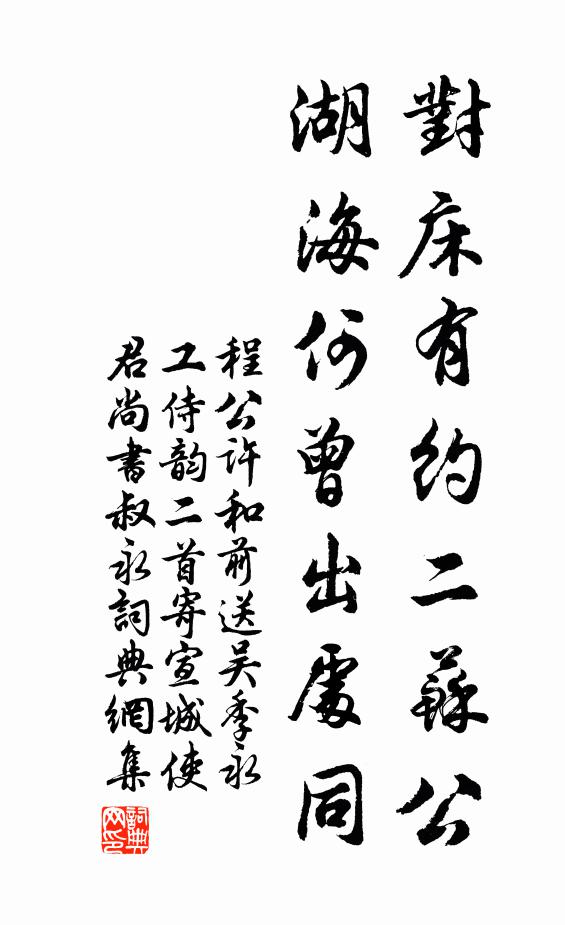 對床有約二蘇公
湖海何曾出處同
程公許和前送吳季永
工侍韵二首寄宣城使
君尚書叔永詞典網集
詞典网印